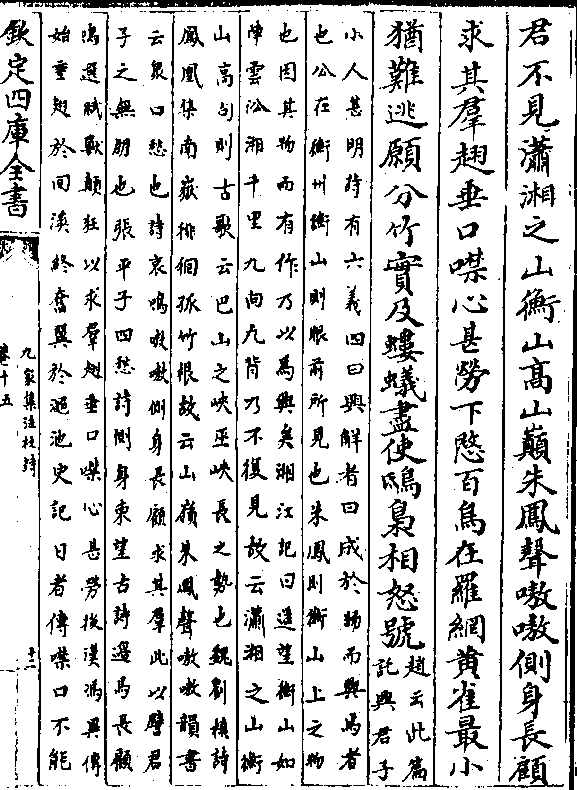 君不見瀟湘之山衡山高山巔朱鳳聲嗷嗷側身長顧
求其羣翅垂口噤心甚勞下愍百鳥在羅網黄雀最小
猶難逃願分竹實及螻蟻盡使鴟梟相怒號趙云此篇
託興君子
小人甚明詩有六義四曰興解者曰成於物而興焉者
也公在衡州衡山則眼前所見也朱鳳則衡山上之物
也因其物而有作乃以爲興矣湘江記曰遥望衡山如
陣雲沿湘千里九向九背乃不復見故云瀟湘之山衡
山高句則古歌云巴山之峽巫峽長之勢也魏劉楨詩
鳳凰集南嶽徘徊孤竹根故云山嶺朱鳳聲嗷嗷韻書
云衆口愁也詩哀鳴嗷嗷側身長顧求其羣此以譬君
子之無朋也張平子四愁詩側身東望古詩邉馬長顧
鳴選賦獸顛狂以求羣翅垂口噤心甚勞後漢馮異傳
始垂翅於囘溪終奮翼於澠池史記日者傳噤口不能
欽定四庫全書
九家集注杜詩
卷十五
十二